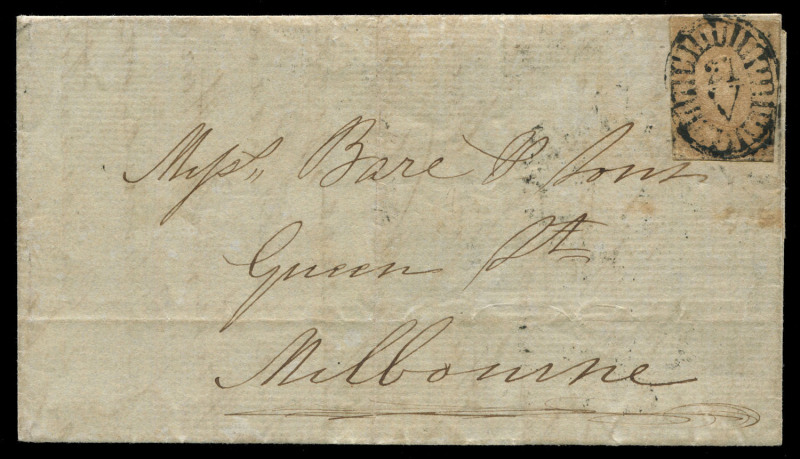 Mess,, Bare & Sons
Queen St
Melbourne
21
V